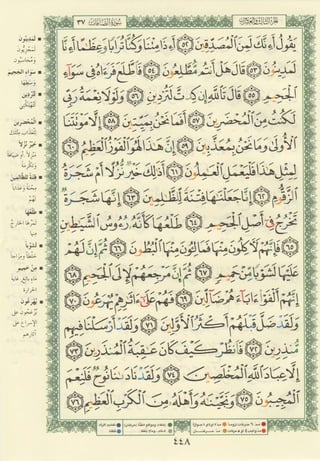 الجزء الثالث والعشرون
سورة الصافات ٣٧
يَقُولُ أَءِنَّكَ لَمِنَ ٱلْمُصَدِّقِينَ ﴿٥٢﴾ أَءِذَا مِتْنَا وَكُنَّا تُرَابًا وَعِظَٰمًا أَءِنَّا
لَمَدِينُونَ ﴿٥٣﴾ قَالَ هَلْ أَنتُم مُّطَّلِعُونَ ﴿٥٤﴾ فَٱطَّلَعَ فَرَءَاهُ فِى سَوَآءِ
ٱلْجَحِيمِ ﴿٥٥﴾ قَالَ تَٱللَّهِ إِن كِدتَّ لَتُرْدِينِ ﴿٥٦﴾ وَلَوْلَا نِعْمَةُ رَبِّى
لَكُنتُ مِنَ ٱلْمُحْضَرِينَ ﴿٥٧﴾ أَفَمَا نَحْنُ بِمَيِّتِينَ ﴿٥٨﴾ إِلَّا مَوْتَتَنَا
ٱلْأُولَىٰ وَمَا نَحْنُ بِمُعَذَّبِينَ ﴿٥٩﴾ إِنَّ هَٰذَا لَهُوَ ٱلْفَوْزُ ٱلْعَظِيمُ ﴿٦٠﴾
لِمِثْلِ هَٰذَا فَلْيَعْمَلِ ٱلْعَٰمِلُونَ ﴿٦١﴾ أَذَٰلِكَ خَيْرٌ نُّزُلًا أَمْ شَجَرَةُ
ٱلزَّقُّومِ ﴿٦٢﴾ إِنَّا جَعَلْنَٰهَا فِتْنَةً لِّلظَّٰلِمِينَ ﴿٦٣﴾ إِنَّهَا شَجَرَةٌ
تَخْرُجُ فِىٓ أَصْلِ ٱلْجَحِيمِ ﴿٦٤﴾ طَلْعُهَا كَأَنَّهُۥ رُءُوسُ ٱلشَّيَٰطِينِ
﴿٦٥﴾ فَإِنَّهُمْ لَءَاكِلُونَ مِنْهَا فَمَالِـُٔونَ مِنْهَا ٱلْبُطُونَ ﴿٦٦﴾ ثُمَّ إِنَّ لَهُمْ
عَلَيْهَا لَشَوْبًا مِّنْ حَمِيمٍ ﴿٦٧﴾ ثُمَّ إِنَّ مَرْجِعَهُمْ لَإِلَى ٱلْجَحِيمِ ﴿٦٨﴾
إِنَّهُمْ أَلْفَوْا۟ ءَابَآءَهُمْ ضَآلِّينَ ﴿٦٩﴾ فَهُمْ عَلَىٰٓ ءَاثَٰرِهِمْ يُهْرَعُونَ ﴿٧٠﴾
وَلَقَدْ ضَلَّ قَبْلَهُمْ أَكْثَرُ ٱلْأَوَّلِينَ ﴿٧١﴾ وَلَقَدْ أَرْسَلْنَا فِيهِم
مُّنذِرِينَ ﴿٧٢﴾ فَٱنظُرْ كَيْفَ كَانَ عَٰقِبَةُ ٱلْمُنذَرِينَ ﴿٧٣﴾
إِلَّا عِبَادَ ٱللَّهِ ٱلْمُخْلَصِينَ ﴿٧٤﴾ وَلَقَدْ نَادَىٰنَا نُوحٌ فَلَنِعْمَ
ٱلْمُجِيبُونَ ﴿٧٥﴾ وَنَجَّيْنَٰهُ وَأَهْلَهُۥ مِنَ ٱلْكَرْبِ ٱلْعَظِيمِ ﴿٧٦﴾
لَمَدِينُونَ
سَوَاءِ الجَحِيمِ
لَتُرْدِينِ
المُحْضَرِينَ
خَيْرٌ نُّزُلًا
فِتْنَةً لِلظَّالِمِينَ
طَلْعُهَا
لَشَوْبًا
مِنْ حَمِيمٍ
يُهْرَعُونَ
٤٤٨